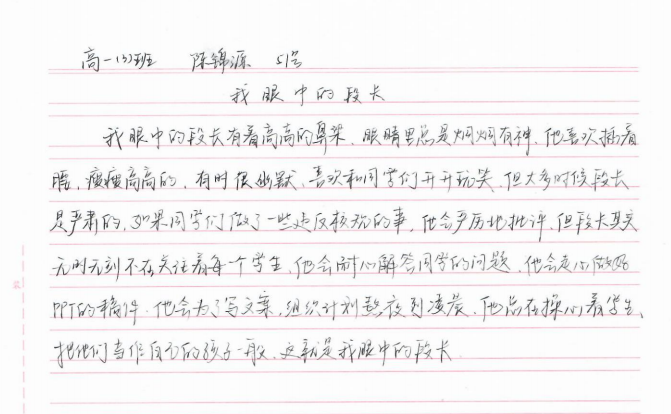 高一(3)班 陈锦源 51号
我眼中的段长
我眼中的段长有着高高的鼻梁，眼睛里总是炯炯有神，他喜欢插着
腰，瘦瘦高高的，有时很幽默，喜欢和同学们开开玩笑，但大多时候段长
是严肃的，如果同学们做了一些违反校规的事，他会严厉地批评，但段长其实
无时无刻不在关注着每个学生，他会耐心解答同学的问题，他会走心做好
PPT的稿件，他会为了写文案，组织计划熬夜到凌晨，他总在操心着学生、
把他们当作自己的孩子一般，这就是我眼中的段长